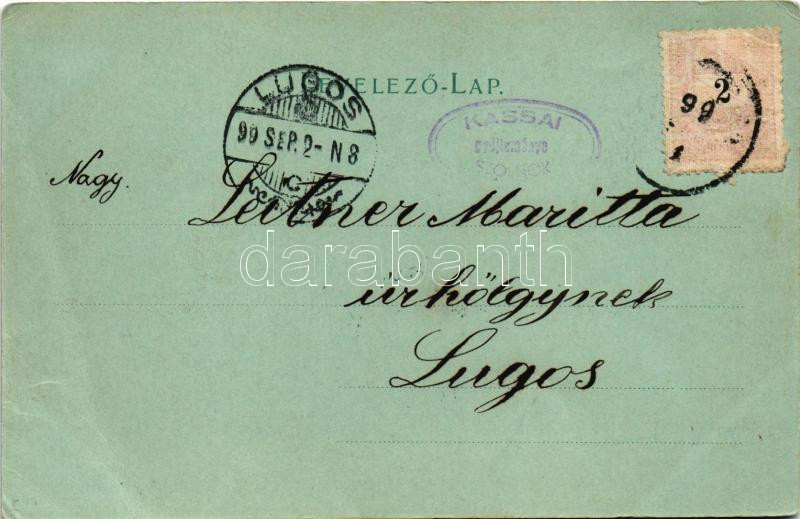 LEVELEZŐ-LAP.
LUGOS
99 SEP. 2 - N 8
C
KASSAI
gyűjteménye
SZOLNOK
2
99
1
Nagy.
Leitner Maritta
úrhölgynek
Lugos
darabanth